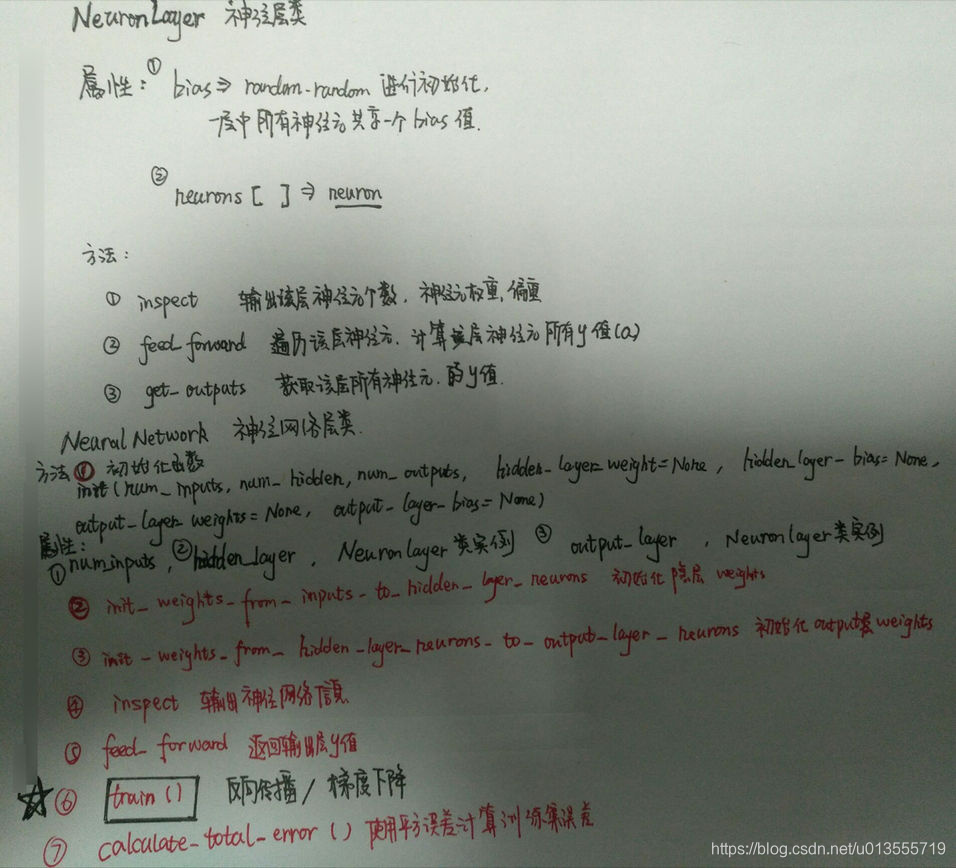 NeuronLayer 神经层类
属性：① bias⇒ random-random 进行初始化，
一层中所有神经元共享一个 bias 值．
② neurons [ ] ⇒ neuron
方法：
① inspect 输出该层神经元个数．神经元权重，偏重
② feed_forward 遍历该层神经元．计算该层神经元所有y值(a)
③ get_outputs 获取该层所有神经元．的y值．
Neural Network 神经网络层类．
方法 ① 初始化函数
init (num_inputs, num_hidden, num_outputs, hidden_layer_weight=None, hidden_layer_bias=None,
output_layer_weights=None, output_layer_bias=None)
属性：
①num_inputs, ②hidden_layer, Neuronlayer类实例 ③ output_layer, Neuronlayer类实例
② init_weights_from_inputs_to_hidden_layer_neurons 初始化隐层 weights
③ init_weights_from_hidden_layer_neurons_to_output_layer_neurons 初始化output层weights
④ inspect 输出神经网络信息
⑤ feed_forward 返回输出层y值
☆⑥ train () 反向传播/梯度下降
⑦ calculate_total_error () 使用平方误差计算训练集误差
https://blog.csdn.net/u013555719